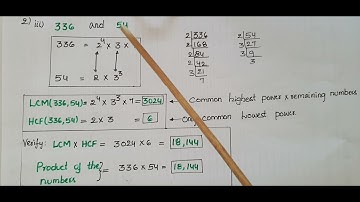 2) iii) 336 and 54
336 = 2⁴ × 3 ×
54 = 2 × 3³
2 336
2 168
2 84
2 42
3 21
7
2 54
3 27
3 9
3
LCM(336,54) = 2⁴ × 3³ × 7 = 3024 ← Common highest power × remaining numbers
HCF(336,54) = 2 × 3 = 6 ← only common lowest power
Verify: LCM × HCF = 3024 × 6 = 18,144
Product of the numbers } = 336 × 54 = 18,144